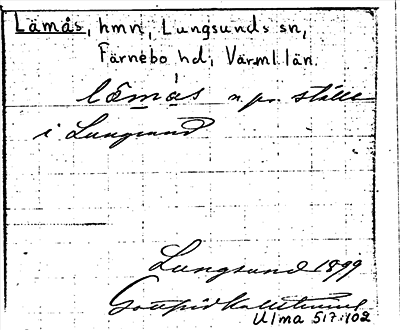 Lämås, hmn, Lungsunds sn,
Färnebo hd, Värml. län.
lämås n. pr. ställe
i Lungsund
Lungsund 1899
Gottfrid Kallstenius
Ulma 517:102